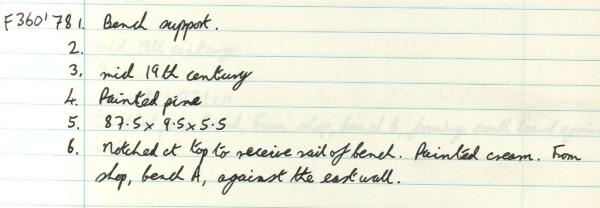 F360'78 1. Bench support.
2.
3. mid 19th century
4. Painted pine
5. 87.5 x 9.5 x 5.5
6. Notched at top to receive rail of bench. Painted cream. From
shop, bench A, against the east wall.